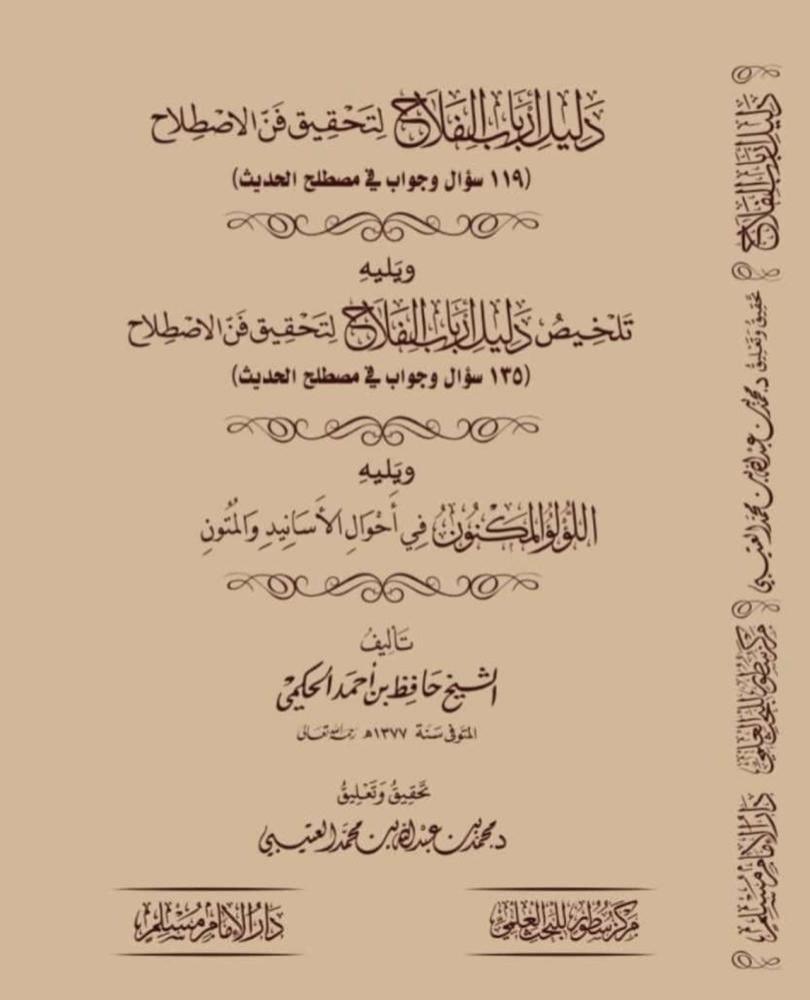 دَلِيلُ أَرْبَابِ الفَلَاحِ لِتَحْقِيقِ فَنِّ الاصْطِلَاح
(١١٩ سؤال وجواب في مصطلح الحديث)
ويَليهِ
تَلْخِيصُ دَلِيلِ أَرْبَابِ الفَلَاحِ لِتَحْقِيقِ فَنِّ الاصْطِلَاح
(١٣٥ سؤال وجواب في مصطلح الحديث)
ويَليهِ
اللُّؤْلُؤُ المَكْنُونُ فِي أَحْوَالِ الأَسَانِيدِ وَالمُتُونِ
تَأليفُ
الشيخ حَافِظ بن أحمَد الحكمي
المتوفى سَنَة ١٣٧٧هـ رحمه الله تعالى
تحقِيقُ وَتَعْلِيقُ
د. محمد بن عبدالله بن محمَّد العتيبي
مركز سطور للبحث العلمي
دَارُ الإمَامِ مُسْلِم
دَلِيلُ أَرْبَابِ الفَلَاحِ
تحقِيقُ وَتَعْلِيقُ د. محمد بن عبدالله بن محمد العتيبي
مركز سطور للبحث العلمي
دَارُ الإمَامِ مُسْلِم